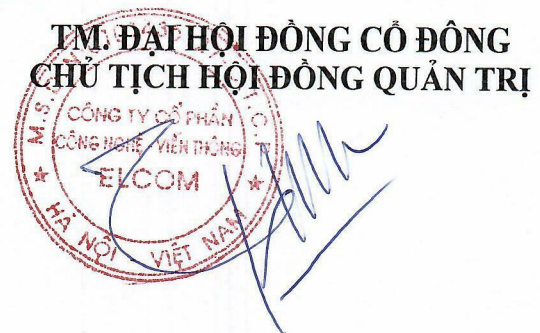 TM. ĐẠI HỘI ĐỒNG CỔ ĐÔNG
CHỦ TỊCH HỘI ĐỒNG QUẢN TRỊ
CÔNG TY CỔ PHẦN
CÔNG NGHỆ - VIỄN THÔNG
ELCOM
HÀ NỘI VIỆT NAM